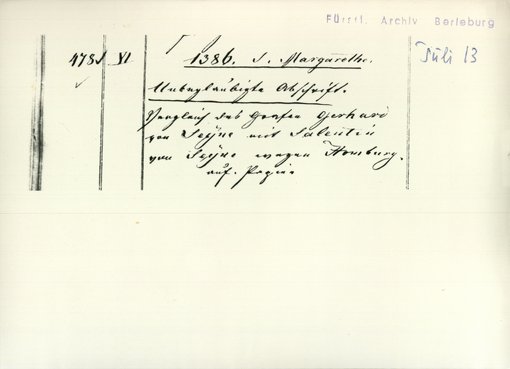 Fürstl. Archiv Berleburg
478 VI 1386. S. Margarethe. Juli 13
Unbeglaubigte Abschrift.
Vergleich des Grafen Gerhard
von Seyne mit Salentin
von Seyne wegen Homburg.
auf. Papier